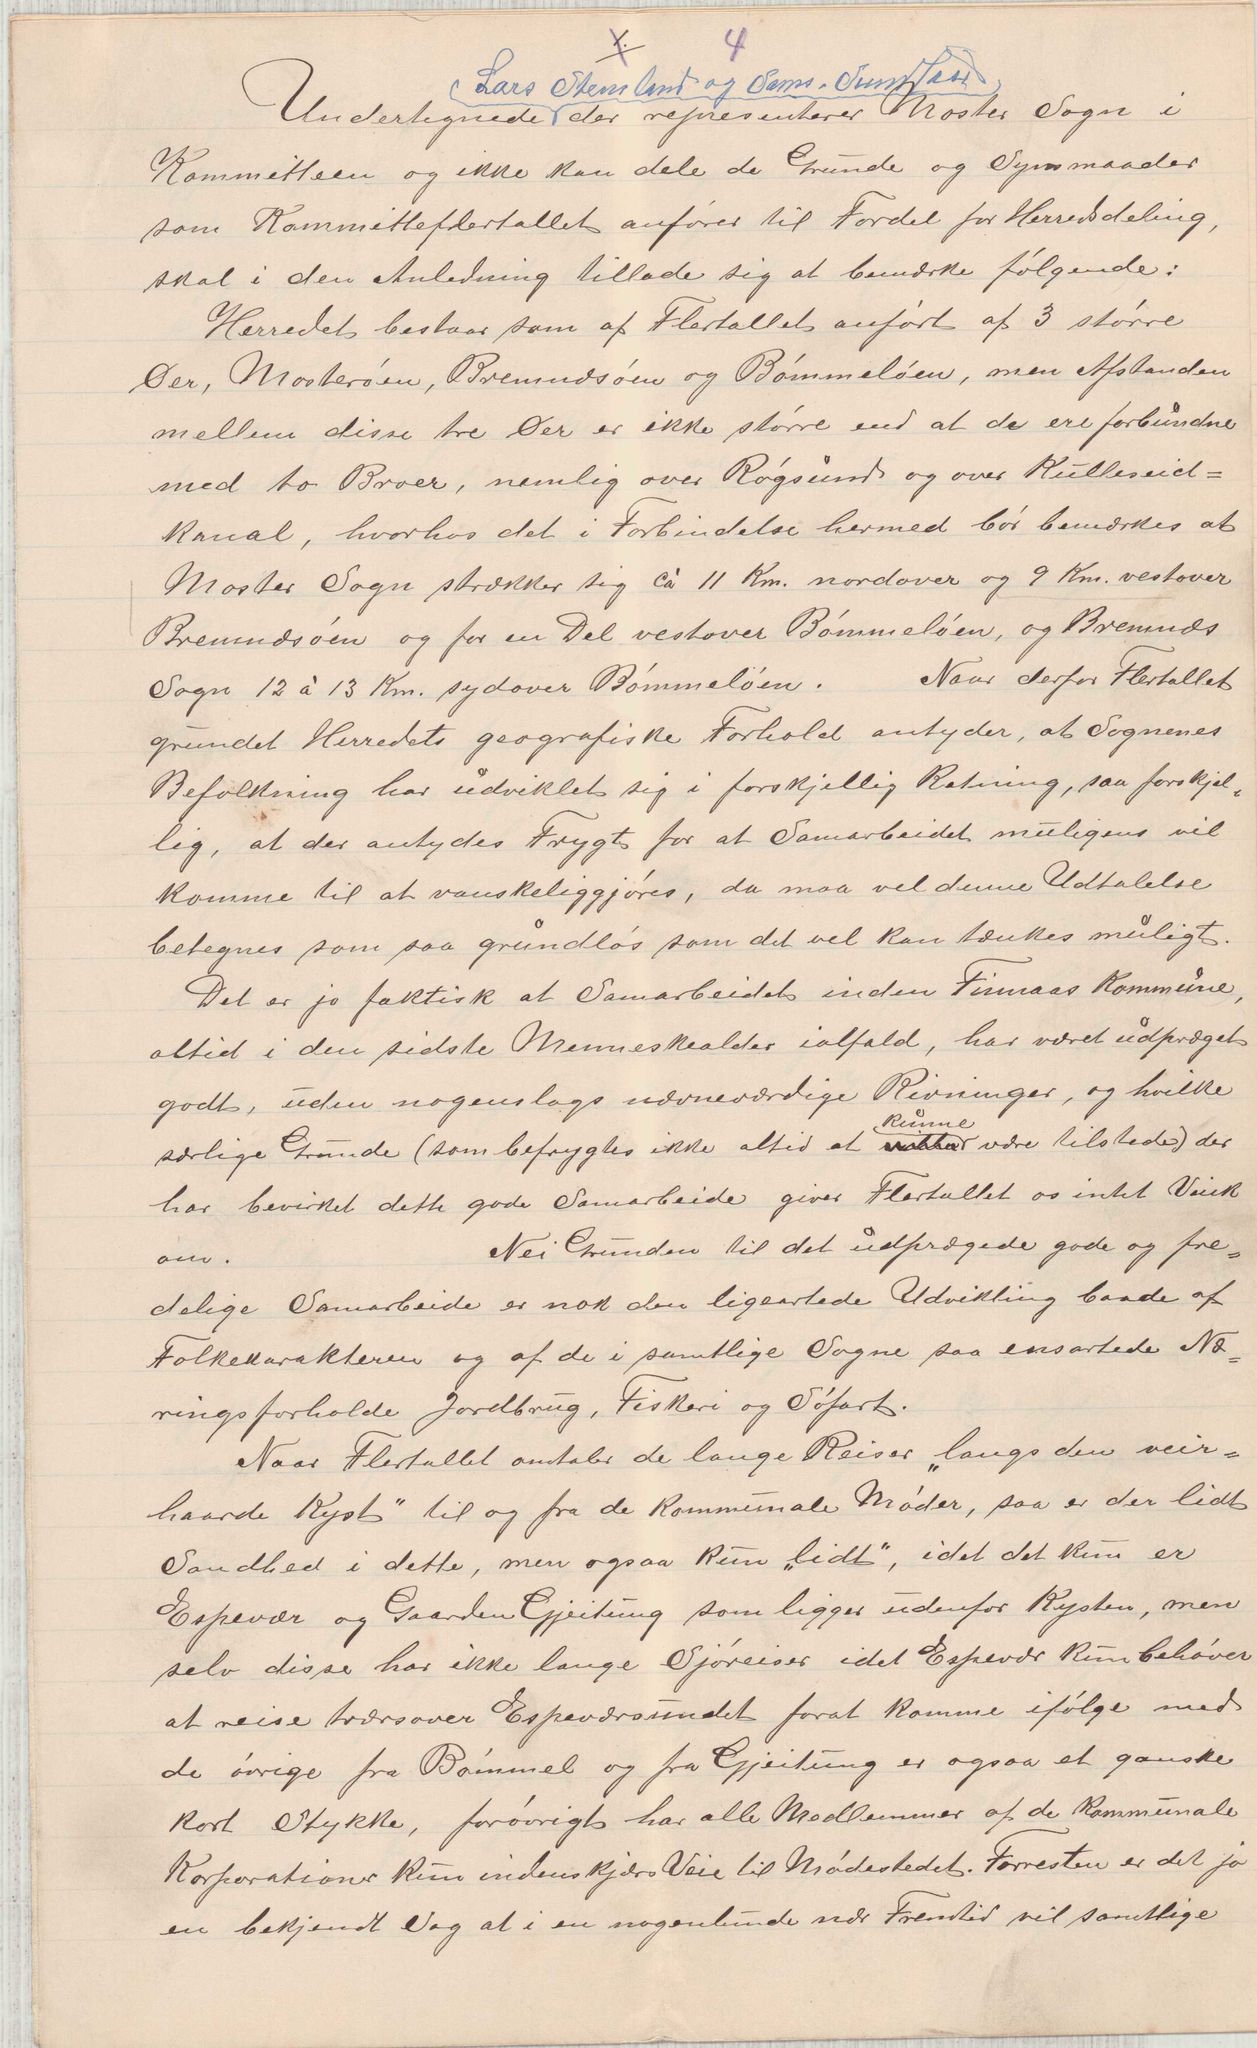 4
Lars Stemland og Sams.
Undertegnede der representerer Moster Sogn i
Kommitteen og ikke kan dele de Grunde og Synsmaader
som Kommitteflertallet anfører til Fordel for Herredsdeling,
skal i den Anledning tillade sig at bemærke følgende:
Herredet bestaar som af Flertallet anført af 3 større
Øer, Mosterøen, Bremnesøen og Bømmeløen, men Afstanden
mellem disse tre Øer er ikke større end at de ere forbundne
med to Broer, nemlig over Røgsund og over Kulleseid=
kanal, hvorhos det i Forbindelse hermed bør bemærkes at
Moster Sogn strækker sig ca 11 Km. nordover og 9 Km. vestover
Bremnæsøen og for en Del vestover Bømmeløen, og Bremnæs
Sogn 12 à 13 Km. sydover Bømmeløen. Naar derfor Flertallet
grundet Herredets geografiske Forhold antyder, at Sognenes
Befolkning har udviklet sig i forskjellig Retning, saa forskjel=
lig, at der antydes Frygt for at Samarbeidet muligens vil
komme til at vanskeliggjøres, da maa vel denne Udtalelse
betegnes som saa grundløs som det vel kan tænkes muligt.
Det er jo faktisk at Samarbeidet inden Finnaas Kommune,
altid i den sidste Menneskealder ialfald, har været udpræget
godt, uden nogenslags nævneværdige Rivninger, og hvilke
kunne
særlige Grunde (som befrygtes ikke altid at være tilstede) der
har bevirket dette gode Samarbeide giver Flertallet os intet Vink
om. Nei Grunden til det udprægede gode og fre=
delige Samarbeide er nok den ligeartede Udvikling baade af
Folkekarakteren og af de i samtlige Sogne saa ensartede Næ=
ringsforholde Jordbrug, Fiskeri og Søfart.
Naar Flertallet omtaler de lange Reiser „langs den veir=
haarde Kyst" til og fra de kommunale Møder, saa er der lidt
Sandhed i dette, men ogsaa kun „lidt", idet det kun er
Espevær og Gaarden Gjeitung som ligger udenfor Kysten, men
selv disse har ikke lange Sjøreiser idet Espevær kun behøver
at reise tværsover Espeværsundet forat komme ifølge med
de øvrige fra Bømmel og fra Gjeitung er ogsaa et ganske
kort Stykke, forøvrigt har alle Medlemmer af de kommunale
Korporationer kun indenskjærs Veie til Mødestedet. Forresten er det jo
en bekjendt Sag at i en nogenlunde nær Fremtid vil samtlige